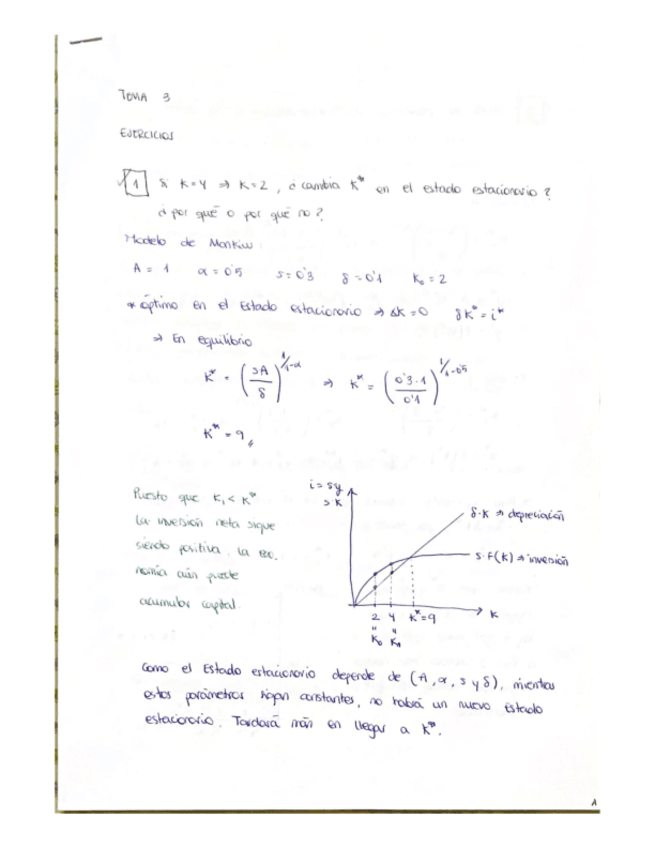 TEMA 3
EJERCICIOS
1 Si K=4 ⇒ K=2, ¿cambia K* en el estado estacionario?
¿por qué o por qué no?
Modelo de Mankiw.
A = 1 α = 0'5 s = 0'3 δ = 0'1 K₀ = 2
* óptimo en el Estado estacionario ⇒ ΔK = 0 δK* = i*
⇒ En equilibrio
K* = (sA/δ)^(1/1-α) ⇒ K* = (0'3·1/0'1)^(1/1-0'5)
K* = 9
Puesto que K₁ < K*
la inversión neta sigue
siendo positiva. La eco.
nomía aún puede
acumular capital.
i = sy
δ·K
δ·K ⇒ depreciación
s·F(K) ⇒ inversión
2 4 K*=9 K
" "
K₀ K₁
Como el Estado estacionario depende de (A, α, s y δ), mientras
estos parámetros sigan constantes, no habrá un nuevo Estado
estacionario. Tardará más en llegar a K*.